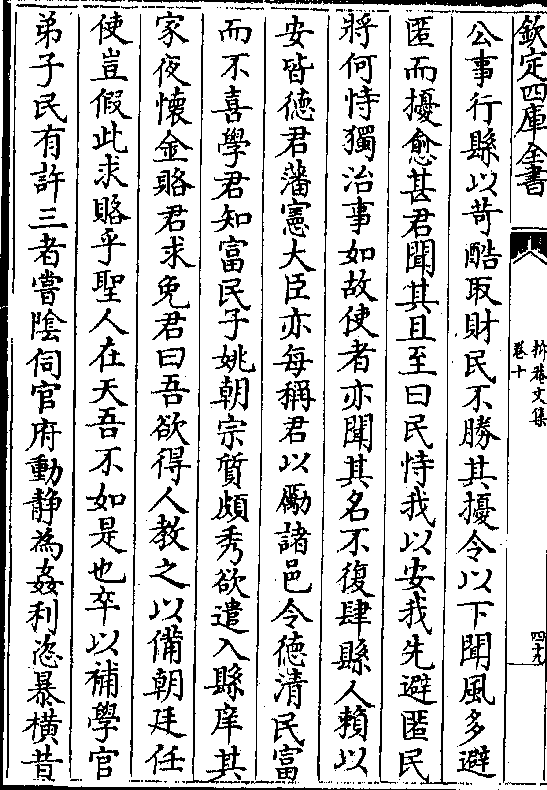 欽定四庫全書
卷十
四十九
公事行縣以苛酷取財民不勝其擾令以下聞風多避
匿而擾愈甚君聞其且至曰民恃我以安我先避匿民
將何恃獨治事如故使者亦聞其名不復肆縣人賴以
安皆德君藩憲大臣亦每稱君以勵諸邑令德清民富
而不喜學君知富民子姚朝宗質頗秀欲遣入縣庠其
家夜懷金賂君求免君曰吾欲得人教之以備朝廷任
使豈假此求賂乎聖人在天吾不如是也卒以補學官
弟子民有許三者嘗陰伺官府動静為姦利恣暴横昔